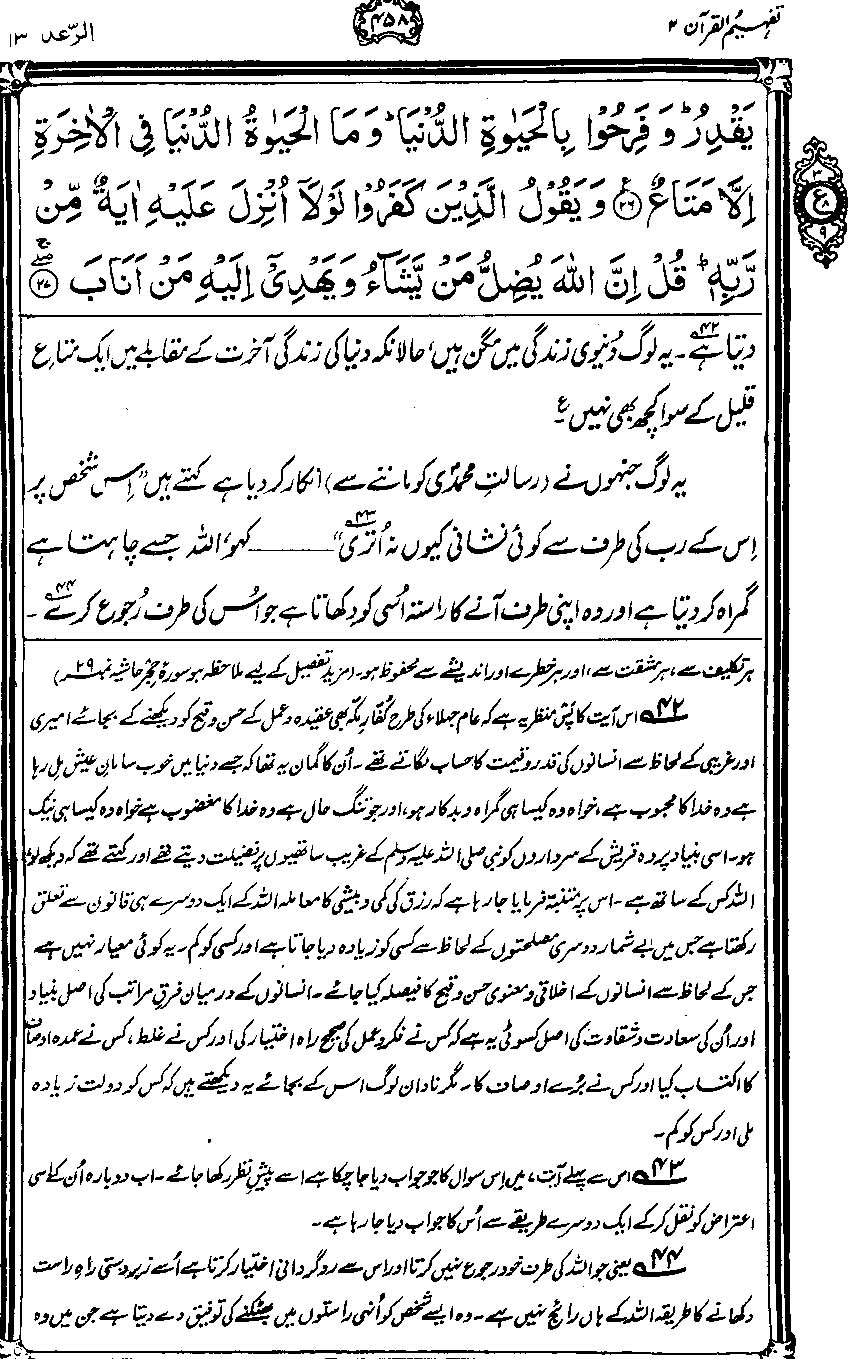 تفہیم القرآن ۲
۴۵۸
الرّعد ۱۳
يَقْدِرُ ؕ وَفَرِحُوْا بِالْحَيٰوةِ الدُّنْيَا ؕ وَمَا الْحَيٰوةُ الدُّنْيَا فِى الْاٰخِرَةِ
اِلَّا مَتَاعٌ ﴿۲۶﴾ وَيَقُوْلُ الَّذِيْنَ كَفَرُوْا لَوْلَاۤ اُنْزِلَ عَلَيْهِ اٰيَةٌ مِّنْ
رَّبِّهٖ ؕ قُلْ اِنَّ اللّٰهَ يُضِلُّ مَنْ يَّشَآءُ وَيَهْدِىْۤ اِلَيْهِ مَنْ اَنَابَ ﴿۲۷﴾
۳
ع
۸
۹
دیتا ہے۴۲۔ یہ لوگ دُنیوی زندگی میں مگن ہیں، حالانکہ دنیا کی زندگی آخرت کے مقابلے میں ایک متاعِ
قلیل کے سوا کچھ بھی نہیں ع۔
یہ لوگ جنہوں نے (رسالتِ محمدی کو ماننے سے) انکار کر دیا ہے کہتے ہیں "اِس شخص پر
اِس کے رب کی طرف سے کوئی نشانی کیوں نہ اُتری۴۳" ــــــ کہو، اللہ جسے چاہتا ہے
گمراہ کر دیتا ہے اور وہ اپنی طرف آنے کا راستہ اُسی کو دکھاتا ہے جو اُس کی طرف رُجوع کرے۴۴۔
ہر تکلیف سے، ہر مشقت سے، اور ہر خطرے اور اندیشے سے محفوظ ہو۔ (مزید تفصیل کے لیے ملاحظہ ہو سورۂ حِجْر حاشیہ نمبر ۲۹)
۴۲ اس آیت کا پس منظر یہ ہے کہ عام جہلاء کی طرح کفّارِ مکّہ بھی عقیدہ و عمل کے حسن و قبح کو دیکھنے کے بجائے امیری
اور غریبی کے لحاظ سے انسانوں کی قدر و قیمت کا حساب لگاتے تھے۔ اُن کا گمان یہ تھا کہ جسے دنیا میں خوب سامانِ عیش مل رہا
ہے وہ خدا کا محبوب ہے، خواہ وہ کیسا ہی گمراہ و بدکار ہو، اور جو تنگ حال ہے وہ خدا کا مغضوب ہے خواہ وہ کیسا ہی نیک
ہو۔ اسی بنیاد پر وہ قریش کے سرداروں کو نبی صلی اللہ علیہ وسلم کے غریب ساتھیوں پر فضیلت دیتے تھے اور کہتے تھے کہ دیکھ لو،
اللہ کس کے ساتھ ہے۔ اس پر متنبہ فرمایا جا رہا ہے کہ رزق کی کمی و بیشی کا معاملہ اللہ کے ایک دوسرے ہی قانون سے تعلق
رکھتا ہے جس میں بے شمار دوسری مصلحتوں کے لحاظ سے کسی کو زیادہ دیا جاتا ہے اور کسی کو کم۔ یہ کوئی معیار نہیں ہے
جس کے لحاظ سے انسانوں کے اخلاقی و معنوی حسن و قبح کا فیصلہ کیا جائے۔ انسانوں کے درمیان فرقِ مراتب کی اصل بنیاد
اور اُن کی سعادت و شقاوت کی اصل کسوٹی یہ ہے کہ کس نے فکر و عمل کی صحیح راہ اختیار کی اور کس نے غلط، کس نے عمدہ اوصاف
کا اکتساب کیا اور کس نے بُرے اوصاف کا۔ مگر نادان لوگ اس کے بجائے یہ دیکھتے ہیں کہ کس کو دولت زیادہ
ملی اور کس کو کم۔
۴۳ اس سے پہلے آیت ، میں اِس سوال کا جو جواب دیا جا چکا ہے اسے پیشِ نظر رکھا جائے۔ اب دوبارہ اُن کے اسی
اعتراض کو نقل کر کے ایک دوسرے طریقے سے اُس کا جواب دیا جا رہا ہے۔
۴۴ یعنی جو اللہ کی طرف خود رجوع نہیں کرتا اور اس سے روگردانی اختیار کرتا ہے اُسے زبردستی راہِ راست
دکھانے کا طریقہ اللہ کے ہاں رائج نہیں ہے۔ وہ ایسے شخص کو اُنہی راستوں میں بھٹکنے کی توفیق دے دیتا ہے جن میں وہ